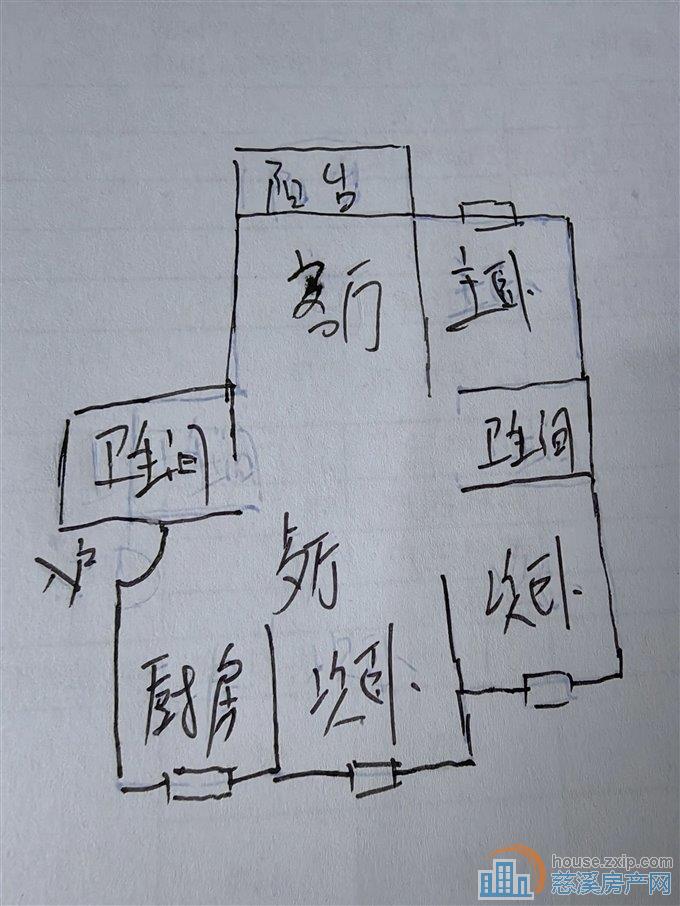 阳台
客厅
主卧
卫生间
卫生间
入户
歺厅
次卧
厨房
次卧
house.zxip.com
慈溪房产网